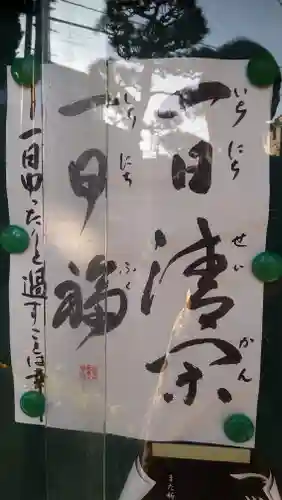 一日清閑
いちにちせいかん
一日福
いちにちふく
一日ゆったりと過すことは幸
また新